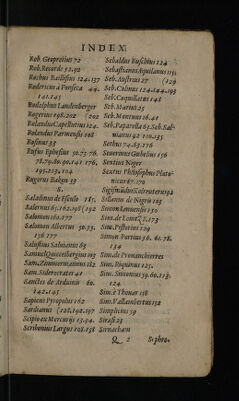 INDEX
Rob. Gropretius 72
Rob. Records 52.92
Rochus Bailifius 124.137
Rodericus à Fonseca 40.
141.145
Rodolphus Landenberger
Rogerius 198.202 (202
Rolandus Capellutius 124.
Rolandus Parmensis 108
Rosinus 33
Rufus Ephesius 50.73.76.
78.79.80.90.141 176,
195.203, 204
Rugorus Bakon 33
S.
Saladinus de Esculo 185.
Salernus 65.162.198 (192
Salomon 160.177
Salomon Albertus 50.73.
156 177
Salustius Salvianus 63
Samuel Quiccelbergius 103
Sam. Zimmermannus 182
Sam. Siderocrates 41
Sanctes de Ardoinis 60.
142.145
Sapiens Pyropolus 162
Sardianus (128.192.197
Scipio ex Mercurijs 13.94.
Scribonius Largus 108.138
Sebaldus Buschius 124
Sebastianus Aquilanus 115
Seb. Austrius 27 (129
Seb. Colinus 124.144.193
Seb. Coquillatus 148
Seb. Marius 25
Seb. Montus 160
Seb. Paparella 63. Seb. Sal-
vianus 92 110.
Sethus 74.83.176
Severinus Gobelius 156
Sextius Niger
Sextus Philosophus Plato-
nicus 67.170
Sillanus de Nigris 163
Simeon Lemensis 150
Sim. Pistorius 129
Simon Portius 56. 61.78.
134
Sim. de Promanchierres
Sim. Riquinus 125.
Sim. Simonius 59.60.113.
124.
Sim. è Thouar 158
Sim. Vallambertus 132
Simplicius 59
Sirasis 23
Sirnacham
Q 2 Sephro.